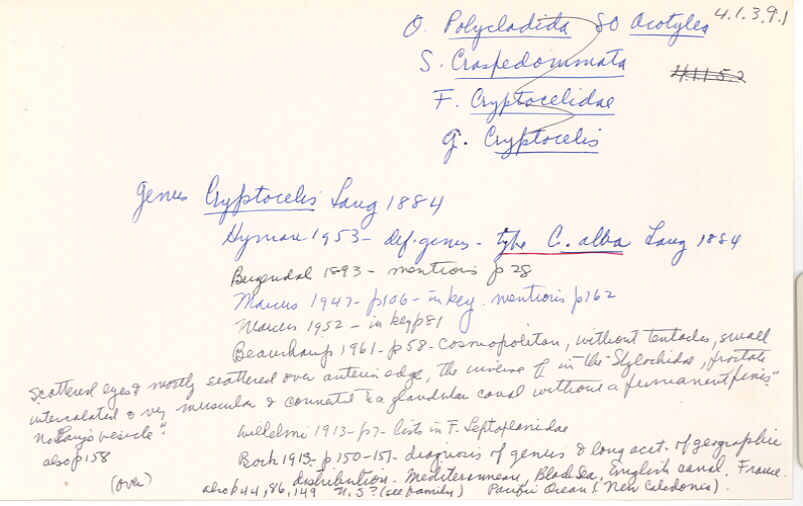 4.1.3.9.1
O. Polycladida SO Acotylea
S. Craspedommata
4.1.1.5.2
F. Cryptocelidae
G. Cryptocelis
Genus Cryptocelis Lang 1884
Hyman 1953 - def. genus - type C. alba Lang 1884
Bergendal 1893 - mentions p 28
Marcus 1947 - p106 - in key. mentions p162
Marcus 1952 - in key p81
Beauchamp 1961 - p58 - Cosmopolitan, without tentacles, small
scattered eyes & mostly scattered over anterior edge, the inverse of in the Stylochidae, prostate
intercalated & very muscular & connected to a glandular canal without a permanent penis"
no Lang's vesicle".
Wilhelmi 1913 - p7 - lists in F. Leptoplanidae
also p 158
Bock 1913 - p150-151 - diagnosis of genus & long acct. of geographic
distribution. Mediterranean, Black Sea, English canal, France.
(over)
also p44, 86, 149 U.S? (see family) Pacific Ocean (New Caledonia).